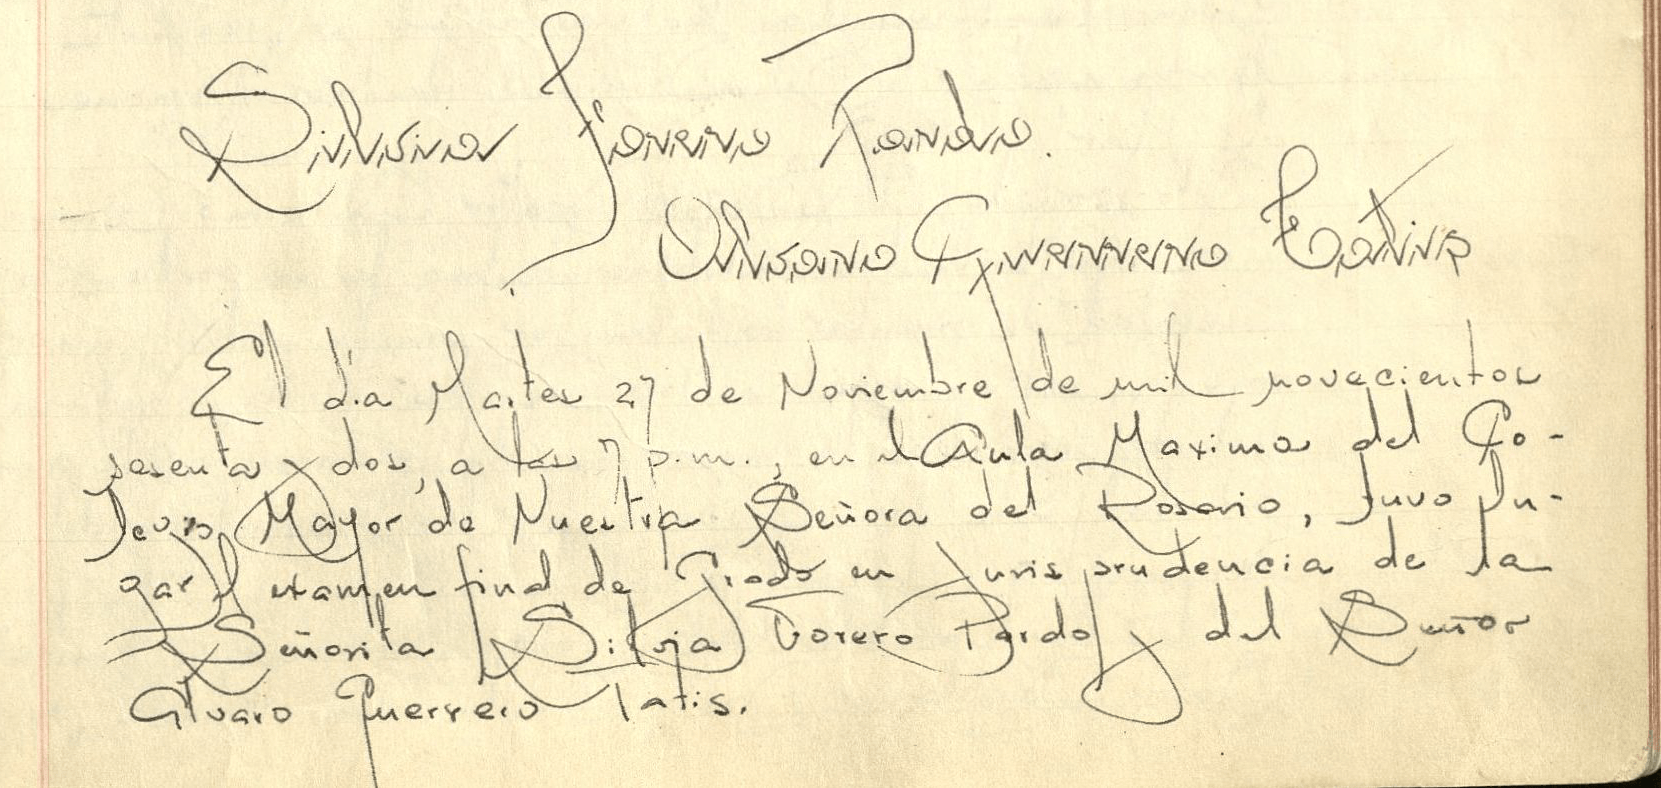 Silvia Forero Pardo.
Alvaro Guerrero Latis
El día Martes 27 de Noviembre de mil novecientos
sesenta y dos, a las 7 p.m., en el Aula Maxima del Co-
legio Mayor de Nuestra Señora del Rosario, tuvo lu-
gar el examen final de Grado en Jurisprudencia de la
Señorita Silvia Forero Pardo y del Señor
Alvaro Guerrero Latis.